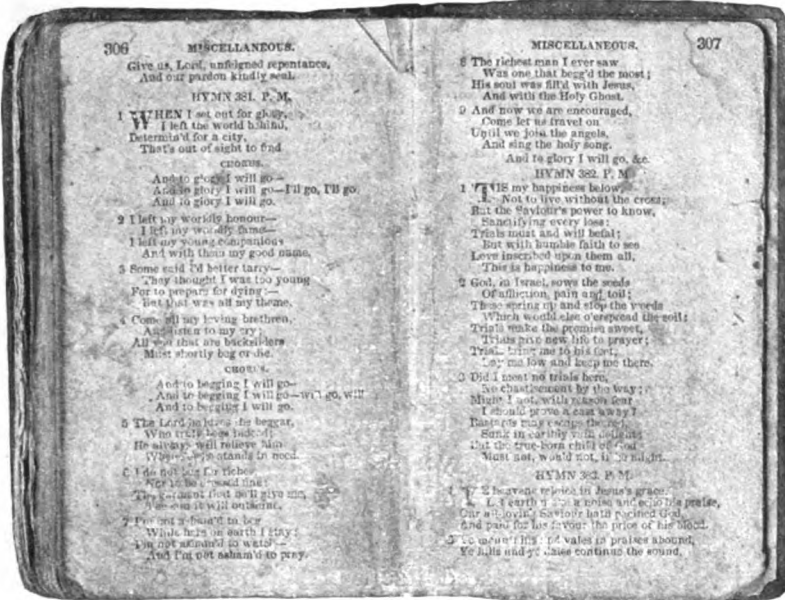 306 MISCELLANEOUS.
Give us, Lord, unfeigned repentance,
And our pardon kindly seal.
HYMN 381. P. M.
1 WHEN I set out for glory,
I left the world behind,
Determin'd for a city,
That's out of sight to find
CHORUS.
And to glory I will go—
And to glory I will go—I'll go, I'll go
And to glory I will go.
2 I left my worldly honour—
I left my worldly fame—
I left my young companions
And with them my good name.
3 Some said I'd better tarry—
They thought I was too young
For to prepare for dying:—
But that was all my theme.
4 Come all my loving brethren,
And listen to my cry;
All you that are backsliders
Must shortly beg or die.
CHORUS.
And to begging I will go—
And to begging I will go—will go, will
And to begging I will go.
5 The Lord the beggar,
Who truly indeed;
He always will relieve him
stands in need.
6 I do not beg for riches
Nor to be fine;
The garment he'll give me,
The sun it will outshine.
7 I'm not asham'd to beg
While here on earth I stay;
I'm not asham'd to watch—
And I'm not asham'd to pray.
MISCELLANEOUS. 307
8 The richest man I ever saw
Was one that begg'd the most;
His soul was fill'd with Jesus,
And with the Holy Ghost.
9 And now we are encouraged,
Come let us travel on
Until we join the angels,
And sing the holy song.
And to glory I will go, &c.
HYMN 382. P. M
1 'TIS my happiness below,
Not to live without the cross;
But the Saviour's power to know,
Sanctifying every loss:
Trials must and will befal;
But with humble faith to see
Love inscribed upon them all,
This is happiness to me.
2 God, in Israel, sows the seeds
Of affliction, pain and toil;
These spring up and stop the weeds
Which would else o'erspread the soil;
Trials make the promise sweet,
Trials give new life to prayer;
Trials bring me to his feet,
Lay me low and keep me there.
3 Did I meet no trials here,
No chastisement by the way;
Might I not, with reason fear
I should prove a cast away?
Bastards may escape the rod,
Sunk in earthly vain delight;
But the true-born child of God
Must not, would not, if he might.
HYMN 383. P. M.
1 YE heavens rejoice in Jesus's grace,
Let earth make a noise and echo his praise,
Our all-loving Saviour hath pacified God,
And paid for his favour the price of his blood.
2 Ye mountains and vales in praises abound,
Ye hills and ye dales continue the sound,